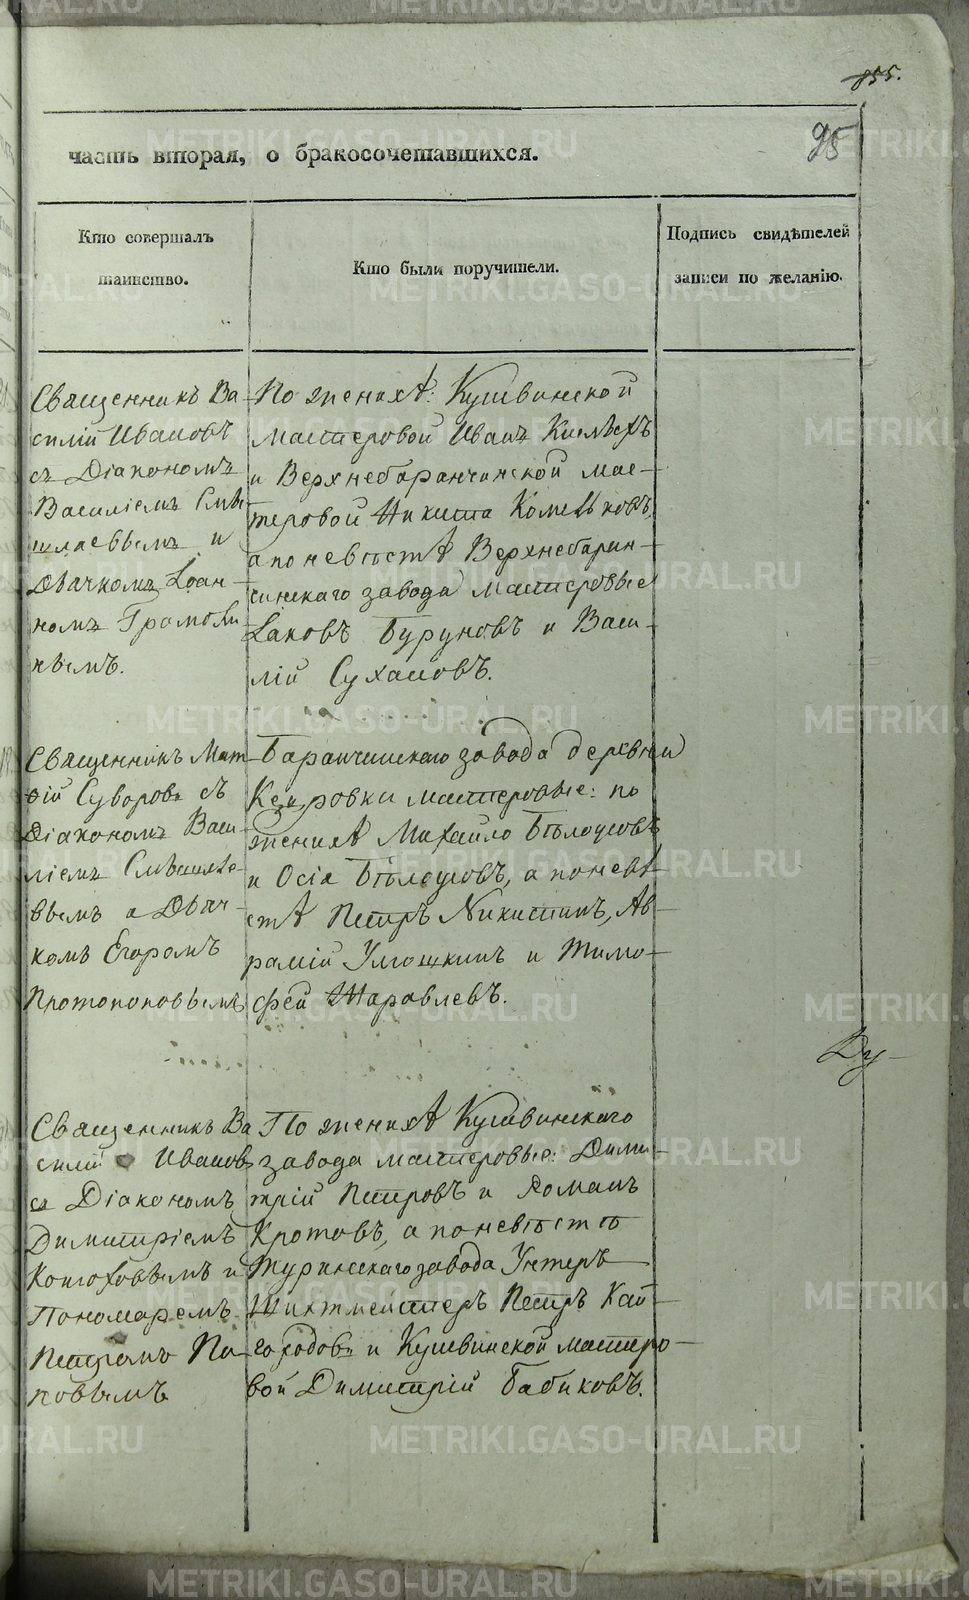 855.
95
часть вторая, о бракосочетавшихся.
Кто совершалъ
таинство.
Кто были поручители.
Подпись свидѣтелей
записи по желанію.
Священникъ Ва-
силій Ивановъ
съ Діакономъ
Василіемъ Смы-
шляевымъ и
Дьячкомъ Іоан-
номъ Грамоли-
нымъ.
По женихѣ: Кушвинской
мастеровой Иванъ Киселевъ
и Верхнебаранчинской мас-
теровой Никита Комельковъ,
а по невѣстѣ Верхнебаран-
чинскаго завода мастеровые
Іаковъ Буруновъ и Васи-
лій Сухановъ.
Священникъ Мат-
ѳій Суворовъ съ
Діакономъ Васи-
ліемъ Смышляе-
вымъ и Дьяч-
комъ Егоромъ
Протопоповымъ
Баранчинскаго завода деревни
Кедровки мастеровые: по
женихѣ Михайло Бѣлоусовъ
и Осія Бѣлоусовъ, а по невѣ-
стѣ Петръ Никитинъ, Ав-
рамій Умошкинъ и Тимо-
фей Журавлевъ.
Ду-
Священникъ Ва
силій Ивановъ
съ Діакономъ
Димитріемъ
Конюховымъ и
Пономаремъ
Петромъ По-
повымъ
По женихѣ Кушвинскаго
завода мастеровые: Дими-
трій Петровъ и Романъ
Кротовъ, а по невѣстѣ
Туринскаго завода Унтеръ
Шихтмейстеръ Петръ Кай-
городовъ и Кушвинской мастеро-
вой Димитрій Бабиковъ.
METRIKI.GASO-URAL.RU